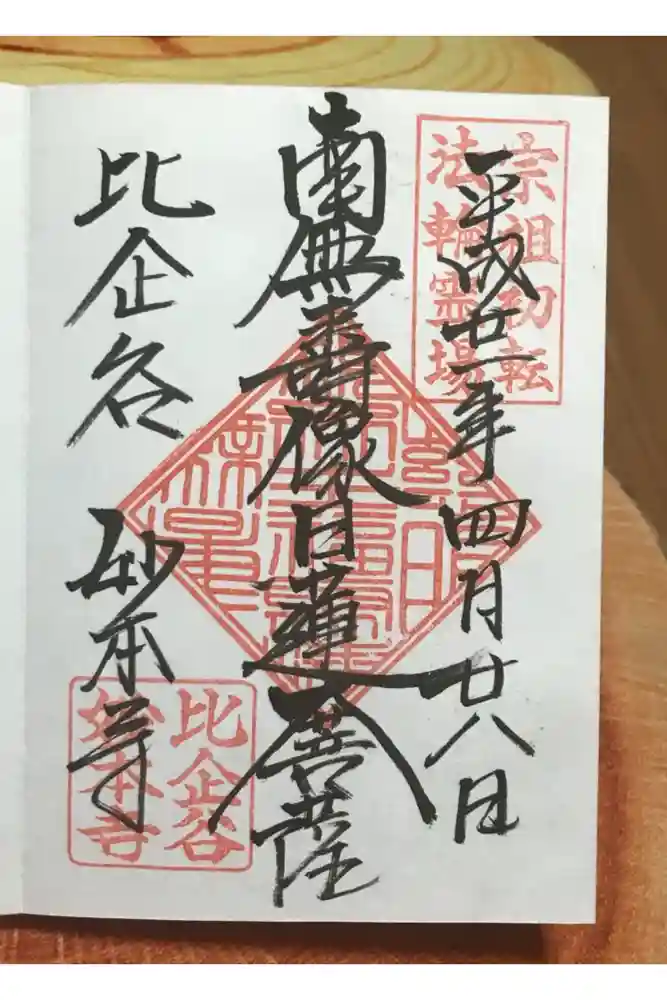 宗祖初転
法輪霊場
平成廿一年四月廿八日
南無寿像日蓮大菩薩
比企谷 妙本寺
比企谷
妙本寺